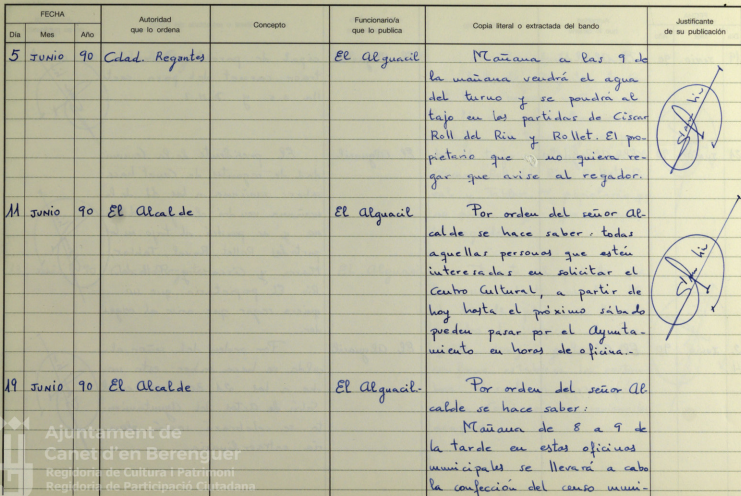 FECHA
Día Mes Año
Autoridad
que lo ordena
Concepto
Funcionario/a
que lo publica
Copia literal o extractada del bando
Justificante
de su publicación
5 JUNIO 90 Cdad. Regantes El Alguacil Mañana a las 9 de
la mañana vendrá el agua
del turno y se pondrá al
tajo en las partidas de Ciscar
Roll del Riu y Rollet. El pro-
pietario que no quiera re-
gar que avise al regador.
11 JUNIO 90 El Alcalde El Alguacil Por orden del señor Al-
calde se hace saber, todas
aquellas personas que estén
interesadas en solicitar el
Centro Cultural, a partir de
hoy hasta el próximo sábado
pueden pasar por el Ayunta-
miento en horas de oficina.-
19 JUNIO 90 El Alcalde El Alguacil.- Por orden del señor Al
calde se hace saber:
Mañana de 8 a 9 de
la tarde en estas oficinas
municipales se llevará a cabo
la confección del censo muni-
Ajuntament de
Canet d'en Berenguer
Regidoria de Cultura i Patrimoni
Regidoria de Participació Ciutadana